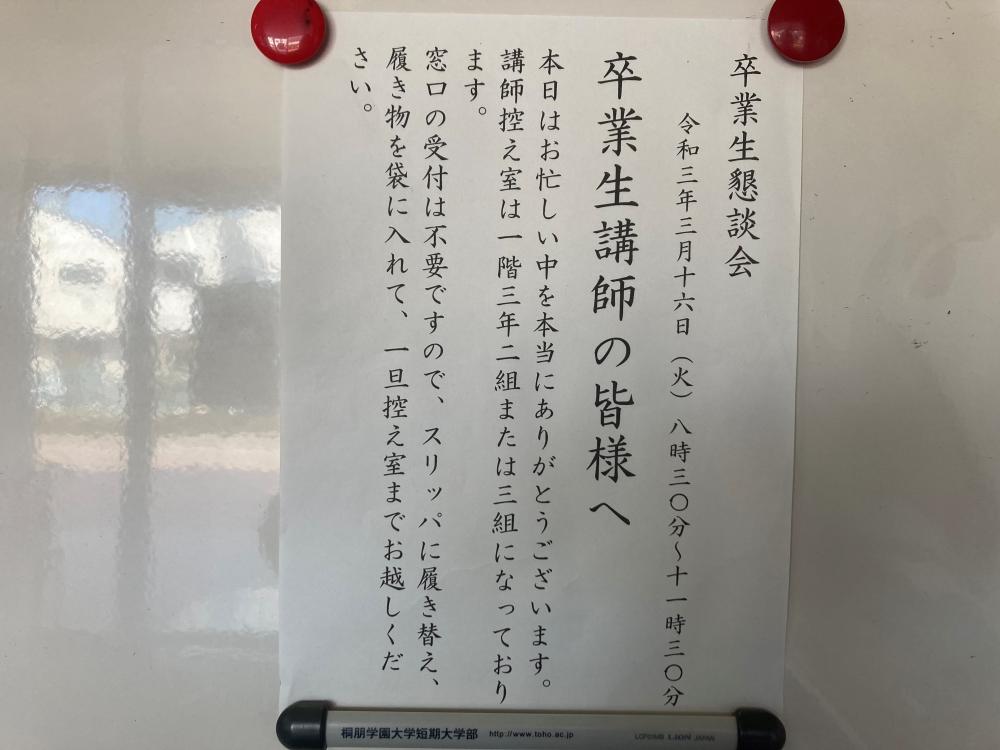 卒業生懇談会
令和三年三月十六日（火）八時三〇分～十一時三〇分
卒業生講師の皆様へ
本日はお忙しい中を本当にありがとうございます。
講師控え室は一階三年二組または三組になっており
ます。
窓口の受付は不要ですので、スリッパに履き替え、
履き物を袋に入れて、一旦控え室までお越しくだ
さい。
桐朋学園大学短期大学部 http://www.toho.ac.jp
LION JAPAN